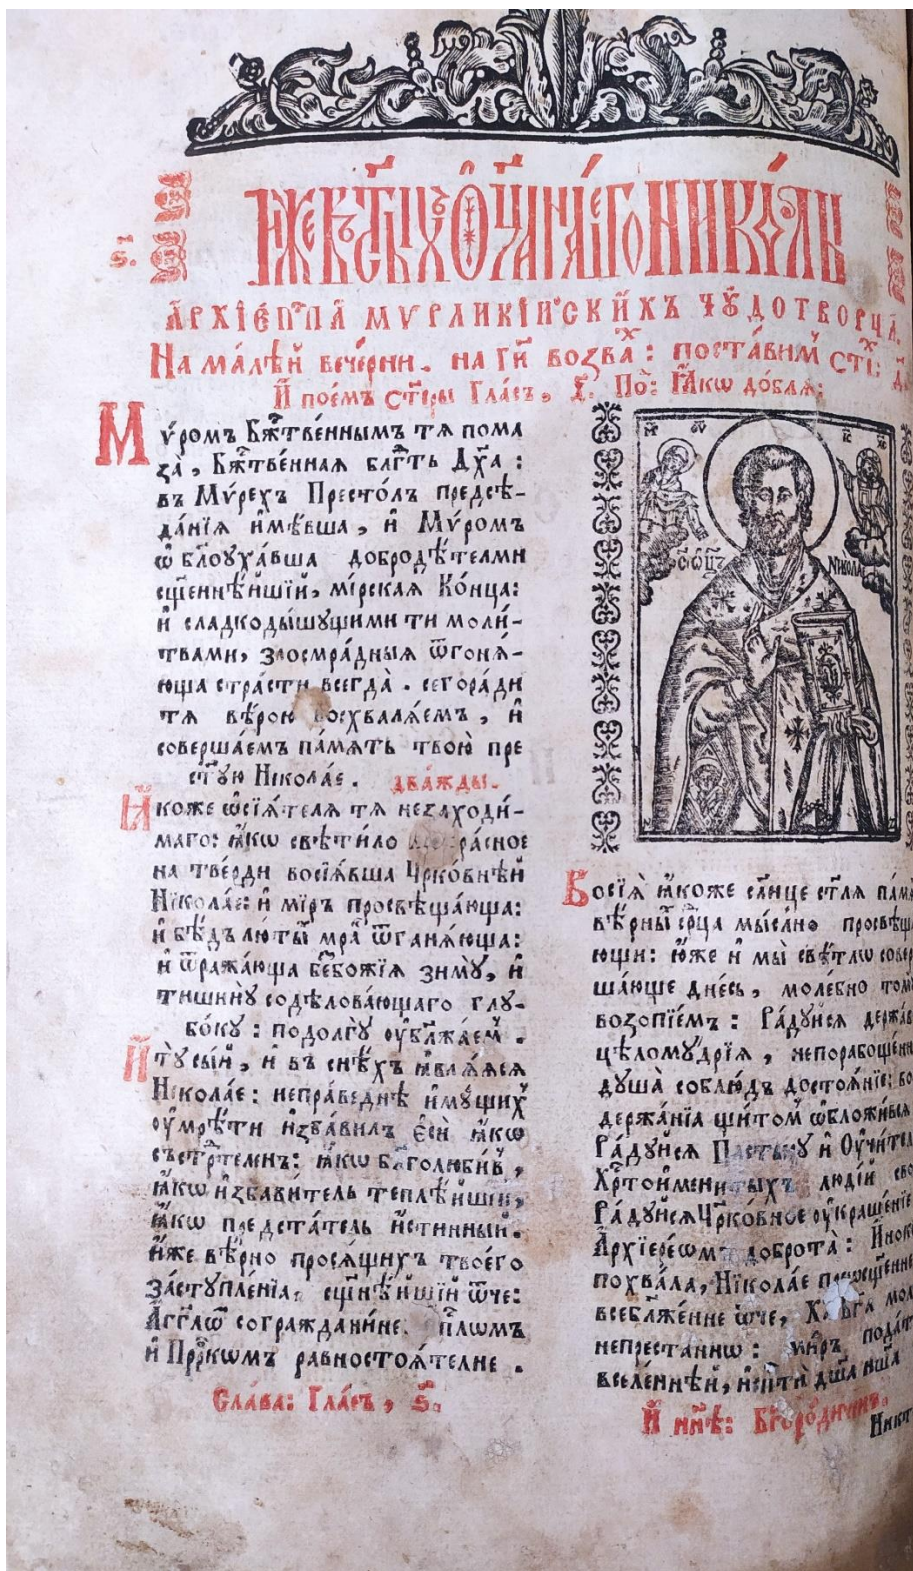 ИЖЕ ВЪ СТЫХЪ ОЦА НАШЕГО НИКОЛЫ
ѕ҃.
АРХІЕПⷭ҇ПА МѴРЛИКІЙСКИХЪ ЧУДОТВОРЦА.
На ма́лѣй вече́рни. на Гⷭ҇и возва̀ⷯ: поста́вимъ стіⷯ: д҃
И҆ пое́мъ стⷯиры Гла́съ, є҃. Поⷣ: Ꙗ҆́кѡ до́бля:
Мѵ́ромъ Бж҃твеннымъ тя пома
за̀, Бж҃тве́нная блгⷣть Дх҃а:
въ Мѵ́рехъ Престо́лъ предсѣ-
да́нїя и҆мѣ́вша, и҆ Мѵ́ромъ
ѡ҆блоуха́вша добродѣ́телми
сщ҃еннѣ́йшїй, мїрская Ко́нца:
и҆ сладкоды́шущими ти моли́-
твами, злосмра́дныя ѿгоня́-
юща стра́сти всегда̀. сегора́ди
тя вѣ́рою восхваля́емъ, и҆
соверша́емъ па́мять твою̀ пре
ст҃у́ю Нїко́лае. два́жды.
Ꙗ҆́коже ѡ҆сїя́теля тя незаходи́-
маго: ꙗ҆́кѡ свѣти́ло всекра́сное
на тве́рди восїя́вша Црко́внѣй
Нїко́лае: и҆ мїръ просвѣща́юща:
и҆ бѣ́дъ лю́тыⷯ мра̀ⷦ ѿганя́юща:
и҆ ѿража́юща безбо́жїя зи́му, и҆
тишину̀ содѣлова́ющаго глу-
бо́ку: подолгу ѹ҆блжа́емъ.
И҆ тꙋ̀ сы́й, и҆ въ снѣ́хъ ꙗ҆вля́яся
Нїко́лае: непра́веднѣ и҆мꙋ́щихъ
ѹ҆мрѣ́ти и҆зба́вилъ є҆сѝ ꙗ҆́кѡ
състрⷭ҇те́ленъ: ꙗ҆́кѡ благолюби́въ,
ꙗ҆́кѡ и҆зба́витель теплѣ́йшїй,
ꙗ҆́кѡ предста́тель и҆́стинный.
и҆́же вѣ́рно прося́щихъ твоего̀
застꙋпле́нїя, сщ҃ннѣ́йшїй ѿ́че:
А҆́гг҃лѡⷨ согражда́нине, а҆пⷭ҇лѡмъ
и҆ Прⷪ҇ро́кѡмъ равностоя́телне.
Сла́ва: Гла́съ, ѕ҃.
МР ѲУ
ІС ХС
СТ҃Ы ОЦ҃Ъ
НИКОЛА
Восїя̀ ꙗ҆́коже сл҃нце ст҃ля па́мѧ
вѣ́рныⷯ срⷣца мы́слно просвѣща
ющи: ю҆́же и҆ мы̀ свѣ́тлѡ совер
ша́юще дне́сь, моле́бно тому
возопїе́мъ: Ра́дуйся держа́в
цѣломꙋ́дрїя, непорабоще́нн
душа̀ соблю́дъ достоя́нїе: во
держа́нїа щито́мъ ѡ҆бложи́вся
Ра́дꙋйся Па́стырꙋ и҆ Оу҆чи́тел
Хрⷭ҇тои҆мени́тыхъ люді́й сво
Ра́дꙋйся Црⷪ҇ко́вное ѹ҆краше́нїе
А҆рхїере́ѡмъ доброта̀: И҆нок
похва́ла, Нїко́лае пресщ҃енне
всеблаже́нне ѿ́че, Хрⷭ҇та̀ Бг҃а мол
непреста́ннѡ: ми́ръ пода́т
вселе́ннѣй, и҆ спⷭ҇тѝ дш҃а нш҃а
И҆ нн҃ѣ: Бг҃оро́диченъ.
Никт